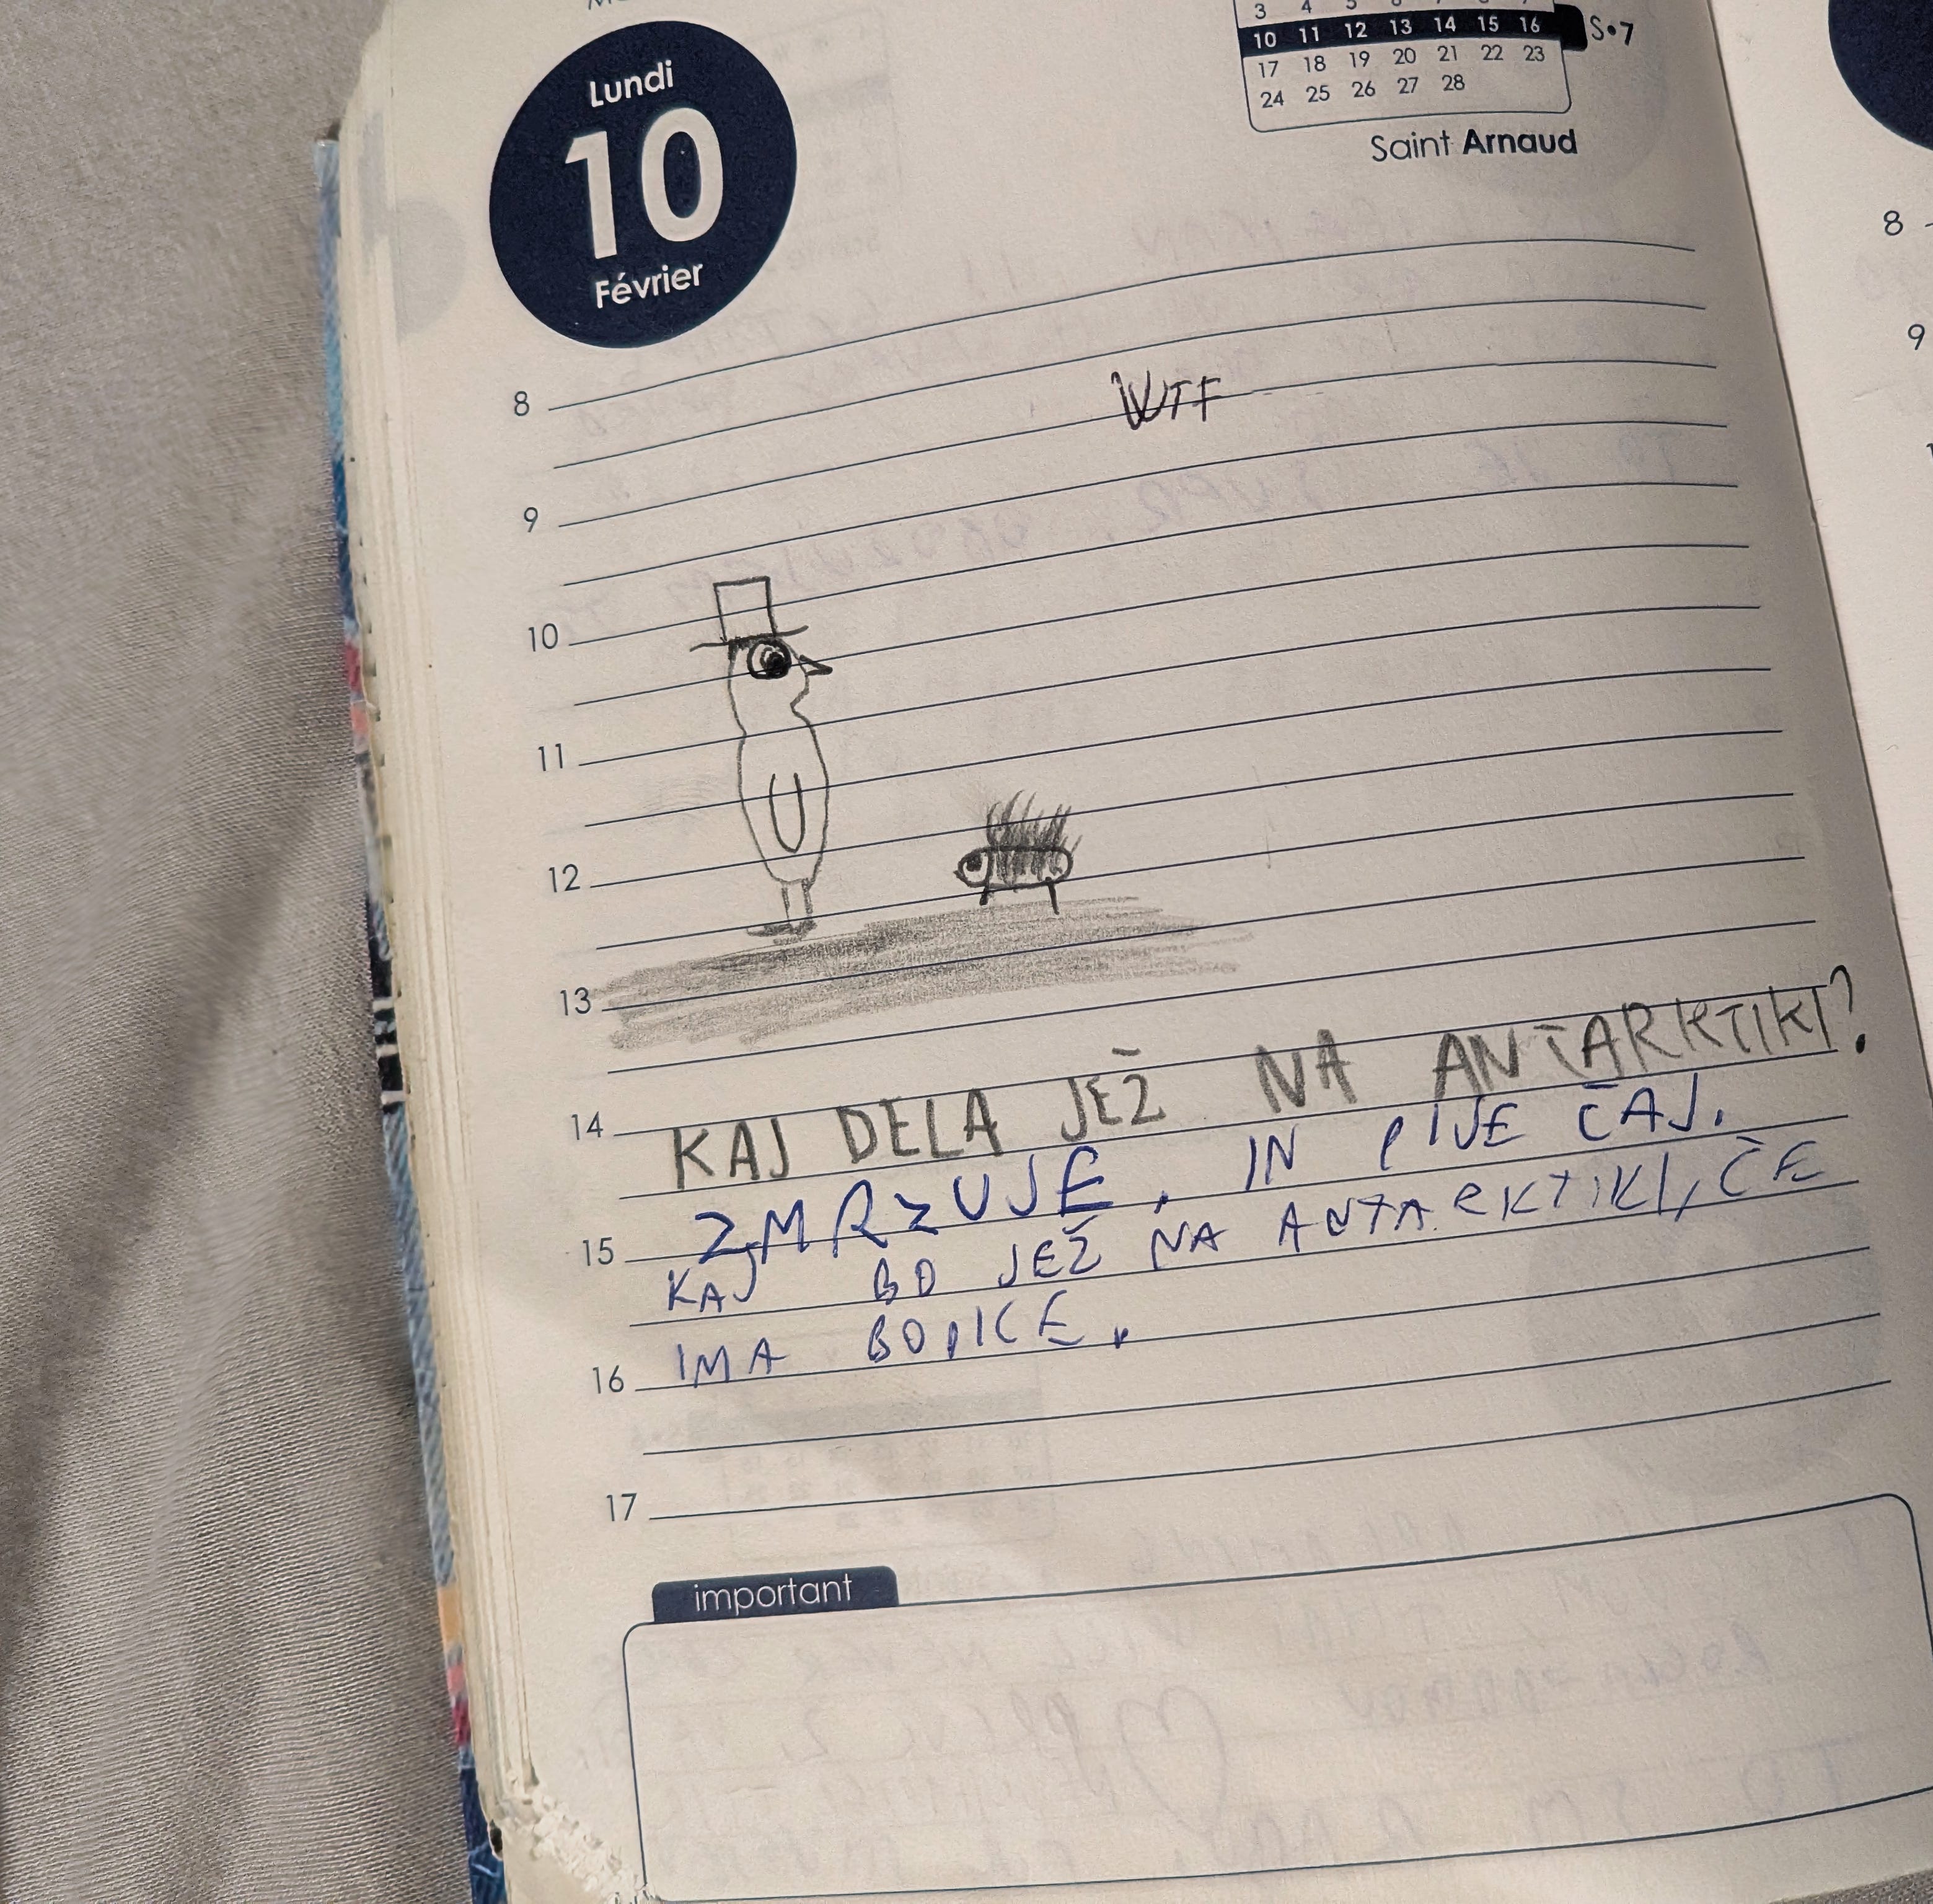 3 4 5 6 7 8 9
10 11 12 13 14 15 16 S•7
17 18 19 20 21 22 23
24 25 26 27 28
Lundi
10
Février
Saint Arnaud
8
WTF
9
10
11
12
13
KAJ DELA JEŽ NA ANTARKTIKI?
14
ZMRZUJE. IN PIJE ČAJ.
15
KAJ BO JEŽ NA ANTARKTIKI, ČE
IMA BODICE.
16
17
important
8
9